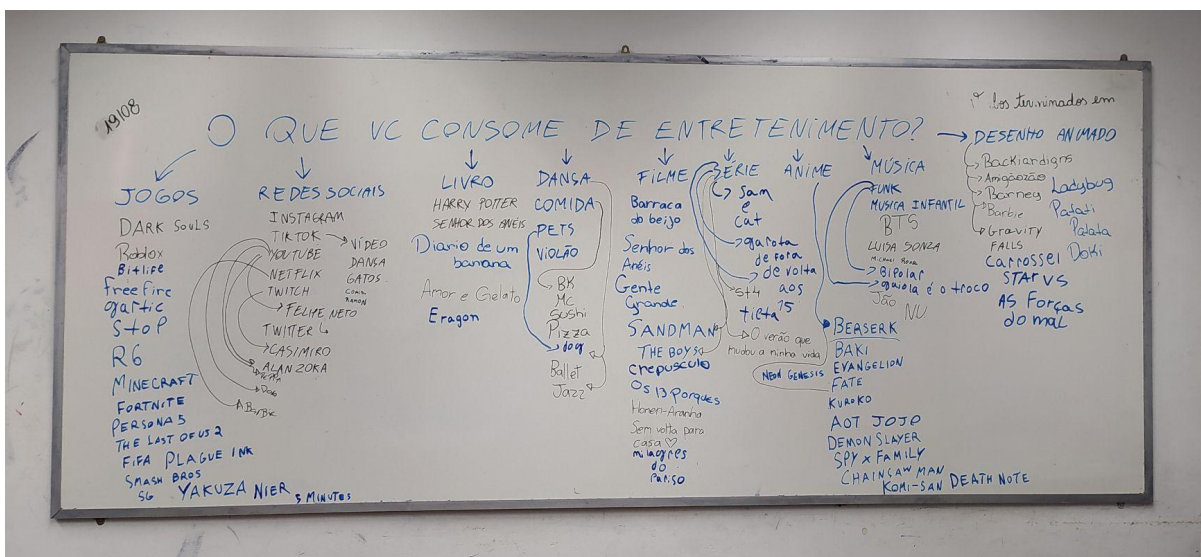 19/08
los terminados em
O QUE VC CONSOME DE ENTRETENIMENTO?
JOGOS
DARK SOULS
Roblox
Bitlife
freefire
gartic
StoP
R6
MINECRAFT
FORTNITE
PERSONA 5
THE LAST OF US 2
FIFA PLAGUE INK
SMASH BROS
SG YAKUZA NIER 5 MINUTES
REDES SOCIAIS
INSTAGRAM
TIKTOK
YOUTUBE
NETFLIX
TWITCH
FELIPE NETO
TWITTER
CASIMIRO
ALANZOKA
VÍDEO
DANSA
GATOS
LIVRO
HARRY POTTER
SENHOR DOS ANÉIS
Diario de um
banana
Amor e Gelato
Eragon
DANSA
COMIDA
PETS
VIOLÃO
BK
MC
Sushi
Pizza
dog
Ballet
Jazz
FILME
Barraca
do beijo
Senhor dos
Anéis
Gente
Grande
SANDMAN
THE BOYS
crepusculo
Os 13 Porques
Homen-Aranha
Sem volta para
casa ♡
milagres
do
Pariso
SÉRIE
Sam
e
Cat
garota
de fora
de volta
aos
15
st4
tieta
O verão que
mudou a minha vida
ANIME
BERSERK
BAKI
NEON GENESIS
EVANGELION
FATE
KUROKO
AOT JOJO
DEMON SLAYER
SPY X FAMILY
CHAINSAW MAN
KOMI-SAN DEATH NOTE
MÚSICA
FUNK
MUSICA INFANTIL
BTS
LUISA SONZA
Bipolar
gaiola é o troco
Jão NU
DESENHO ANIMADO
Backiardigns
Amigãozão
Barney
Barbie
Gravity
FALLS
Carrossel
STAR VS
AS Forças
do mal
Ladybug
Patati
Patata
Doki